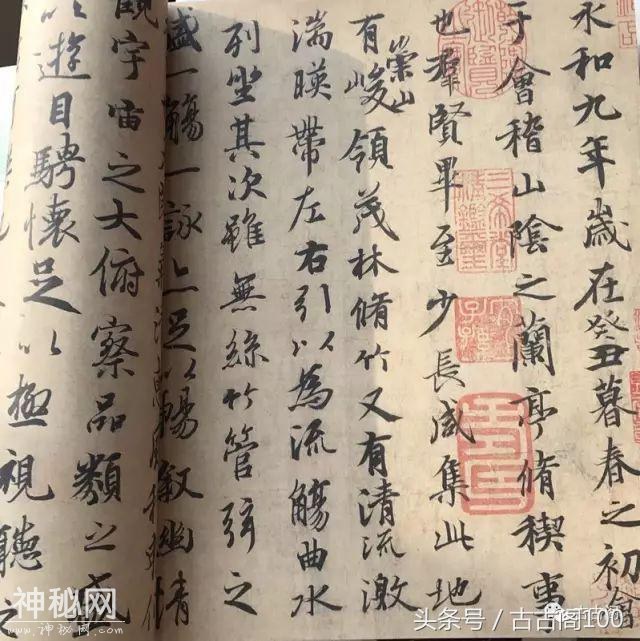 永和九年歲在癸丑暮春之初會
于會稽山陰之蘭亭脩稧事
也羣賢畢至少長咸集此地
有崇山峻領茂林脩竹又有清流激
湍暎帶左右引以為流觴曲水
列坐其次雖無絲竹管弦之
盛一觴一詠亦足以暢敘幽情
觀宇宙之大俯察品類之盛
以遊目騁懷足以極視聽之
三希堂精鑑璽
宜子孫
神秘网
www.神秘网.com
头条号 / 古古阁100